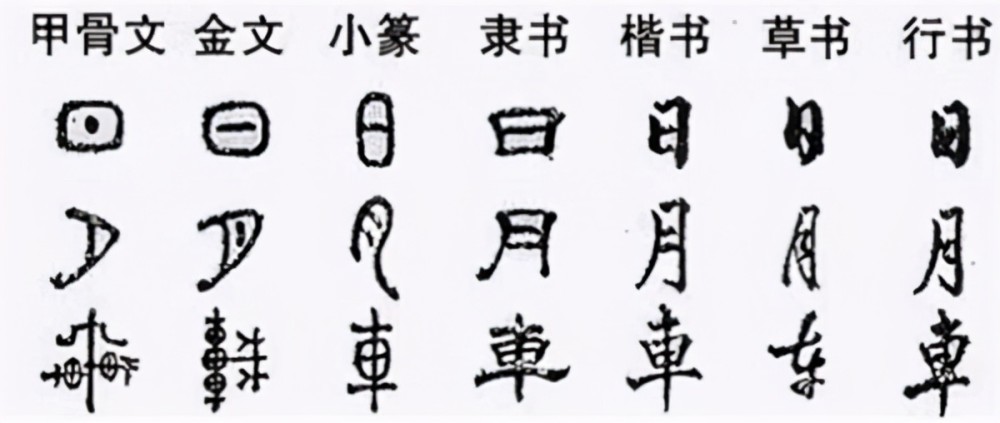 甲骨文 金文 小篆 隶书 楷书 草书 行书
日 日 日 日 日 日 日
月 月 月 月 月 月 月
車 車 車 車 車 車 車